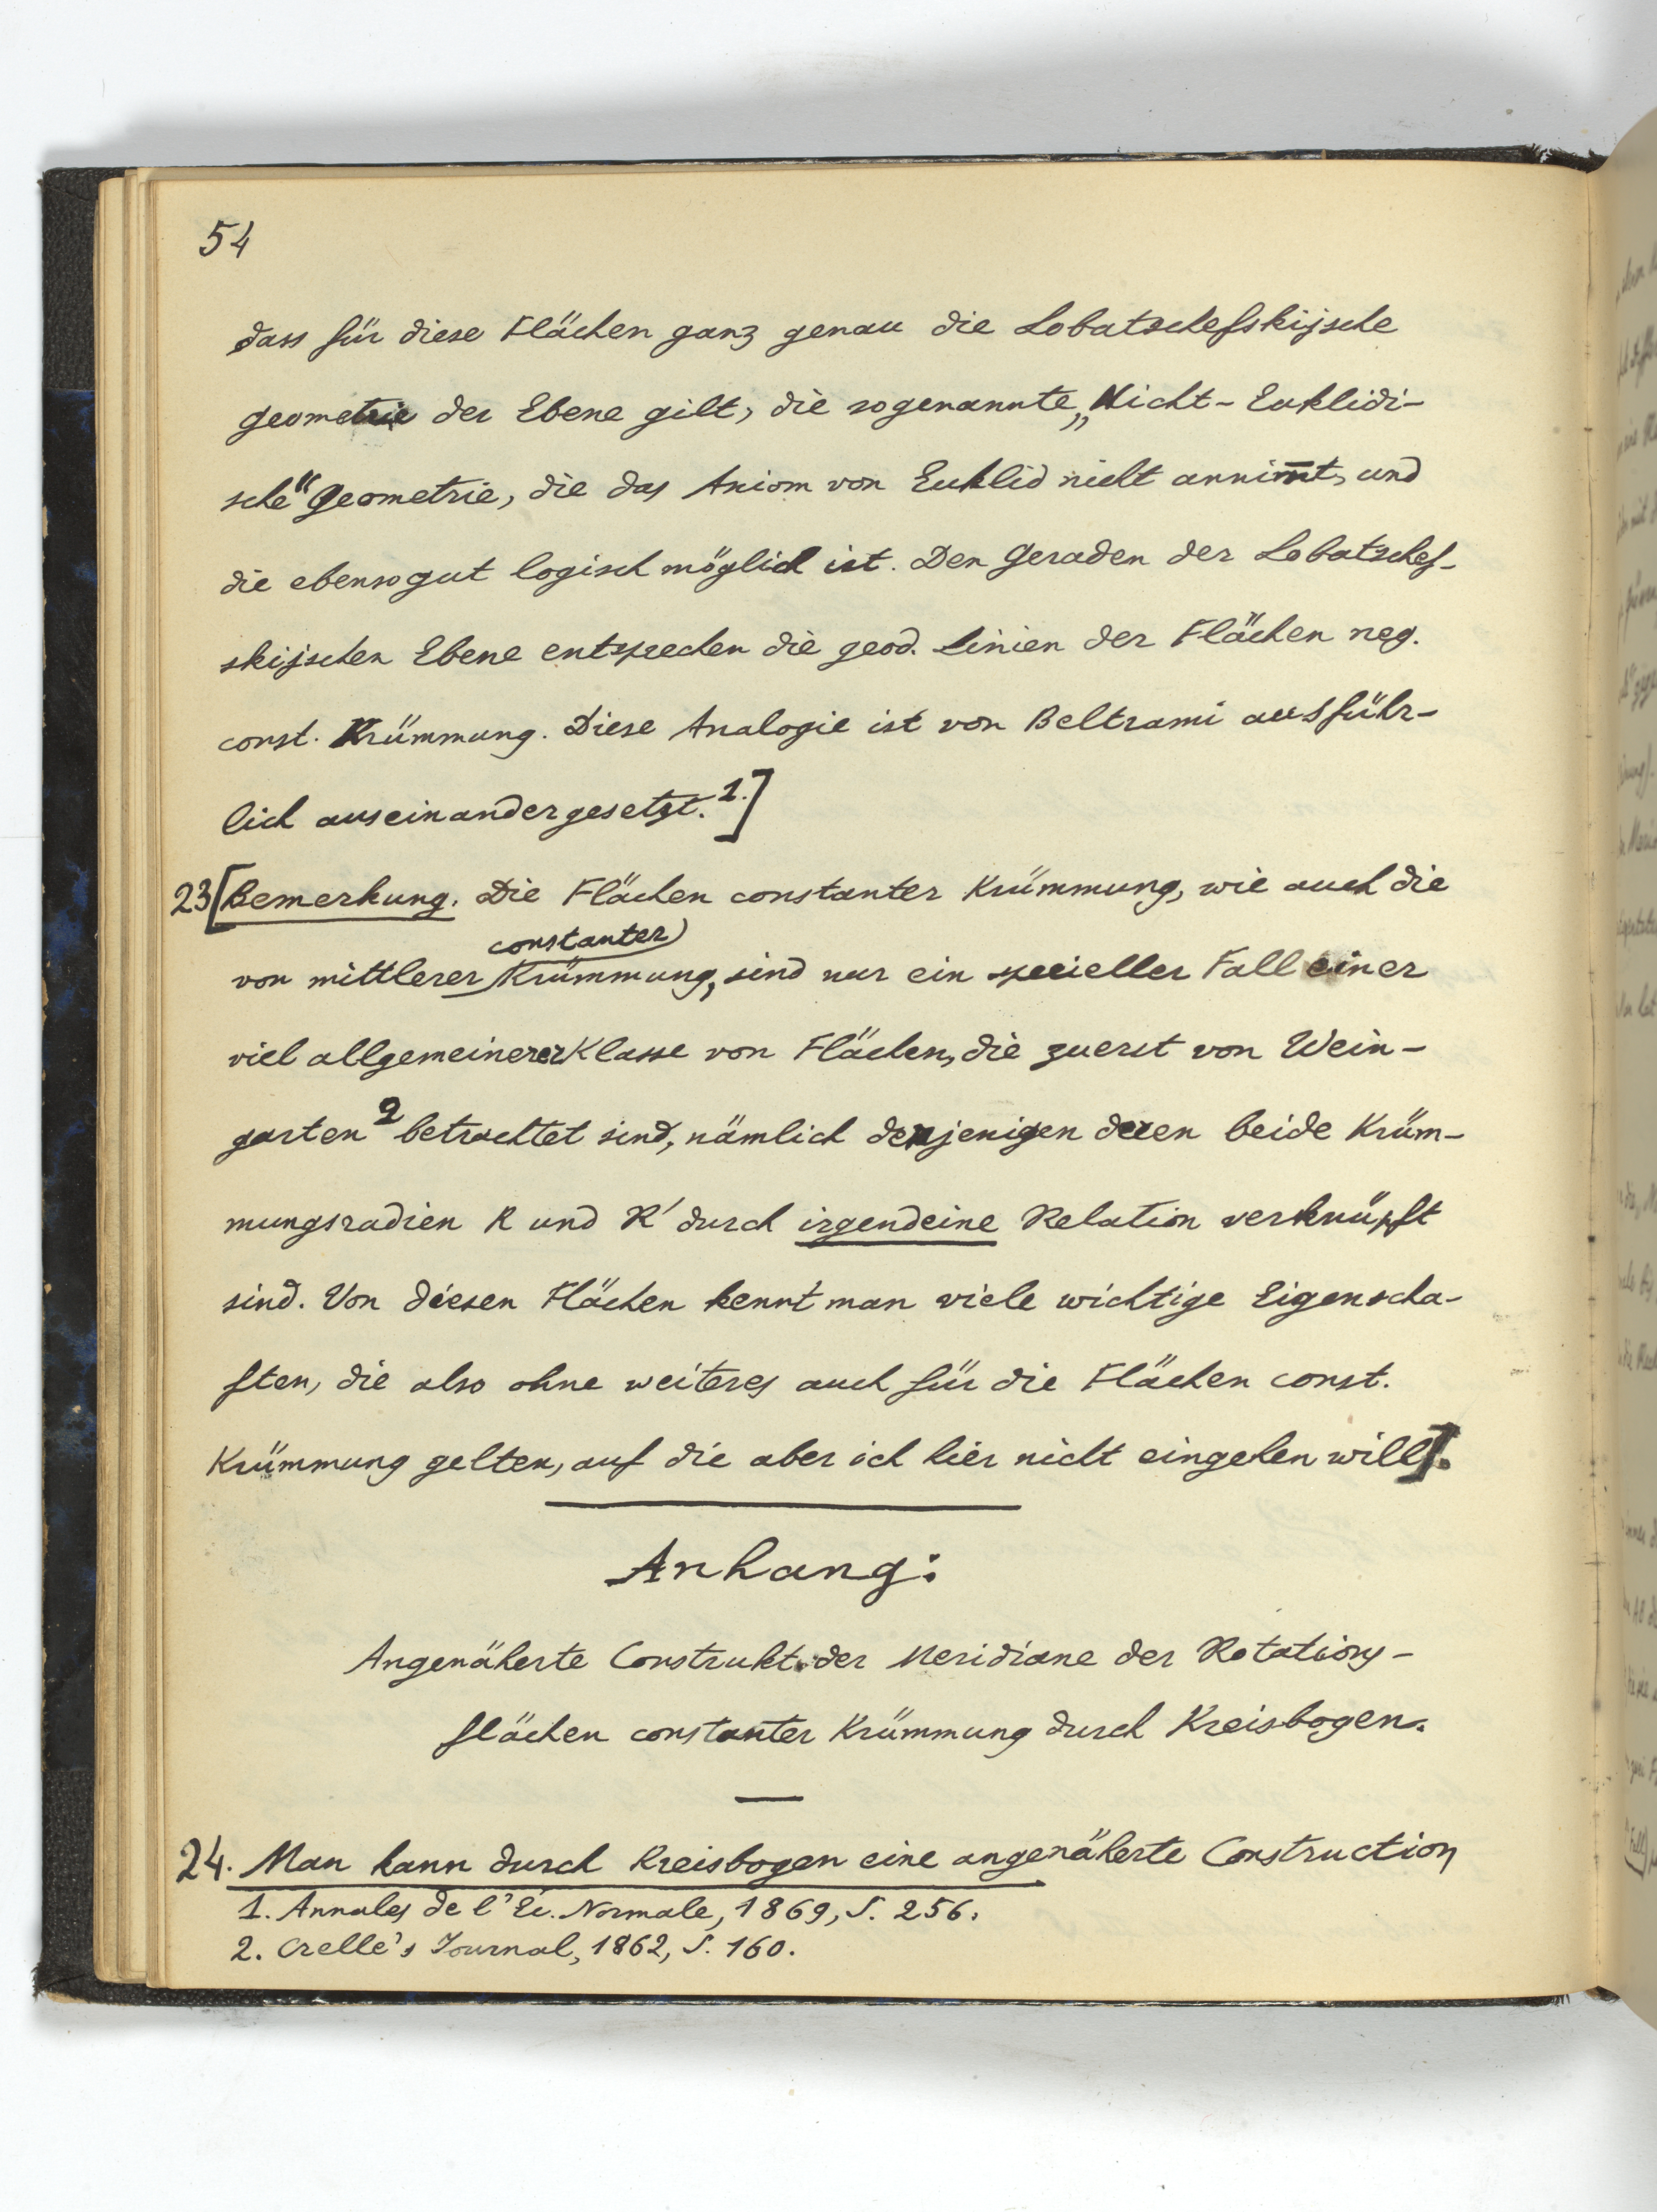 54
dass für diese Flächen ganz genau die Lobatschefskijsche
Geometrie der Ebene gilt, die sogenannte „Nicht-Euklidi-
sche“ Geometrie, die das Axiom von Euklid nicht annim̅t, und
die ebensogut logisch möglich ist. Den Geraden der Lobatschef-
skijschen Ebene entsprechen die geod. Linien der Flächen neg.
const. Krümmung. Diese Analogie ist von Beltrami ausführ-
lich auseinandergesetzt.1.]
23[Bemerkung. Die Flächen constanter Krümmung, wie auch die
constanter
von mittlerer Krümmung, sind nur ein specieller Fall einer
viel allgemeinerer Klasse von Flächen, die zuerst von Wein-
garten2 betrachtet sind, nämlich denjenigen deren beide Krüm-
mungsradien R und R' durch irgendeine Relation verknüpft
sind. Von diesen Flächen kennt man viele wichtige Eigenscha-
ften, die also ohne weiteres auch für die Flächen const.
Krümmung gelten, auf die aber ich hier nicht eingehen will].
Anhang:
Angenäherte Construkt. der Meridiane der Rotations-
flächen constanter Krümmung durch Kreisbogen.
24. Man kann durch Kreisbogen eine angenäherte Construction
1. Annales de l'Éc. Normale, 1869, S. 256.
2. Crelle's Journal, 1862, S. 160.